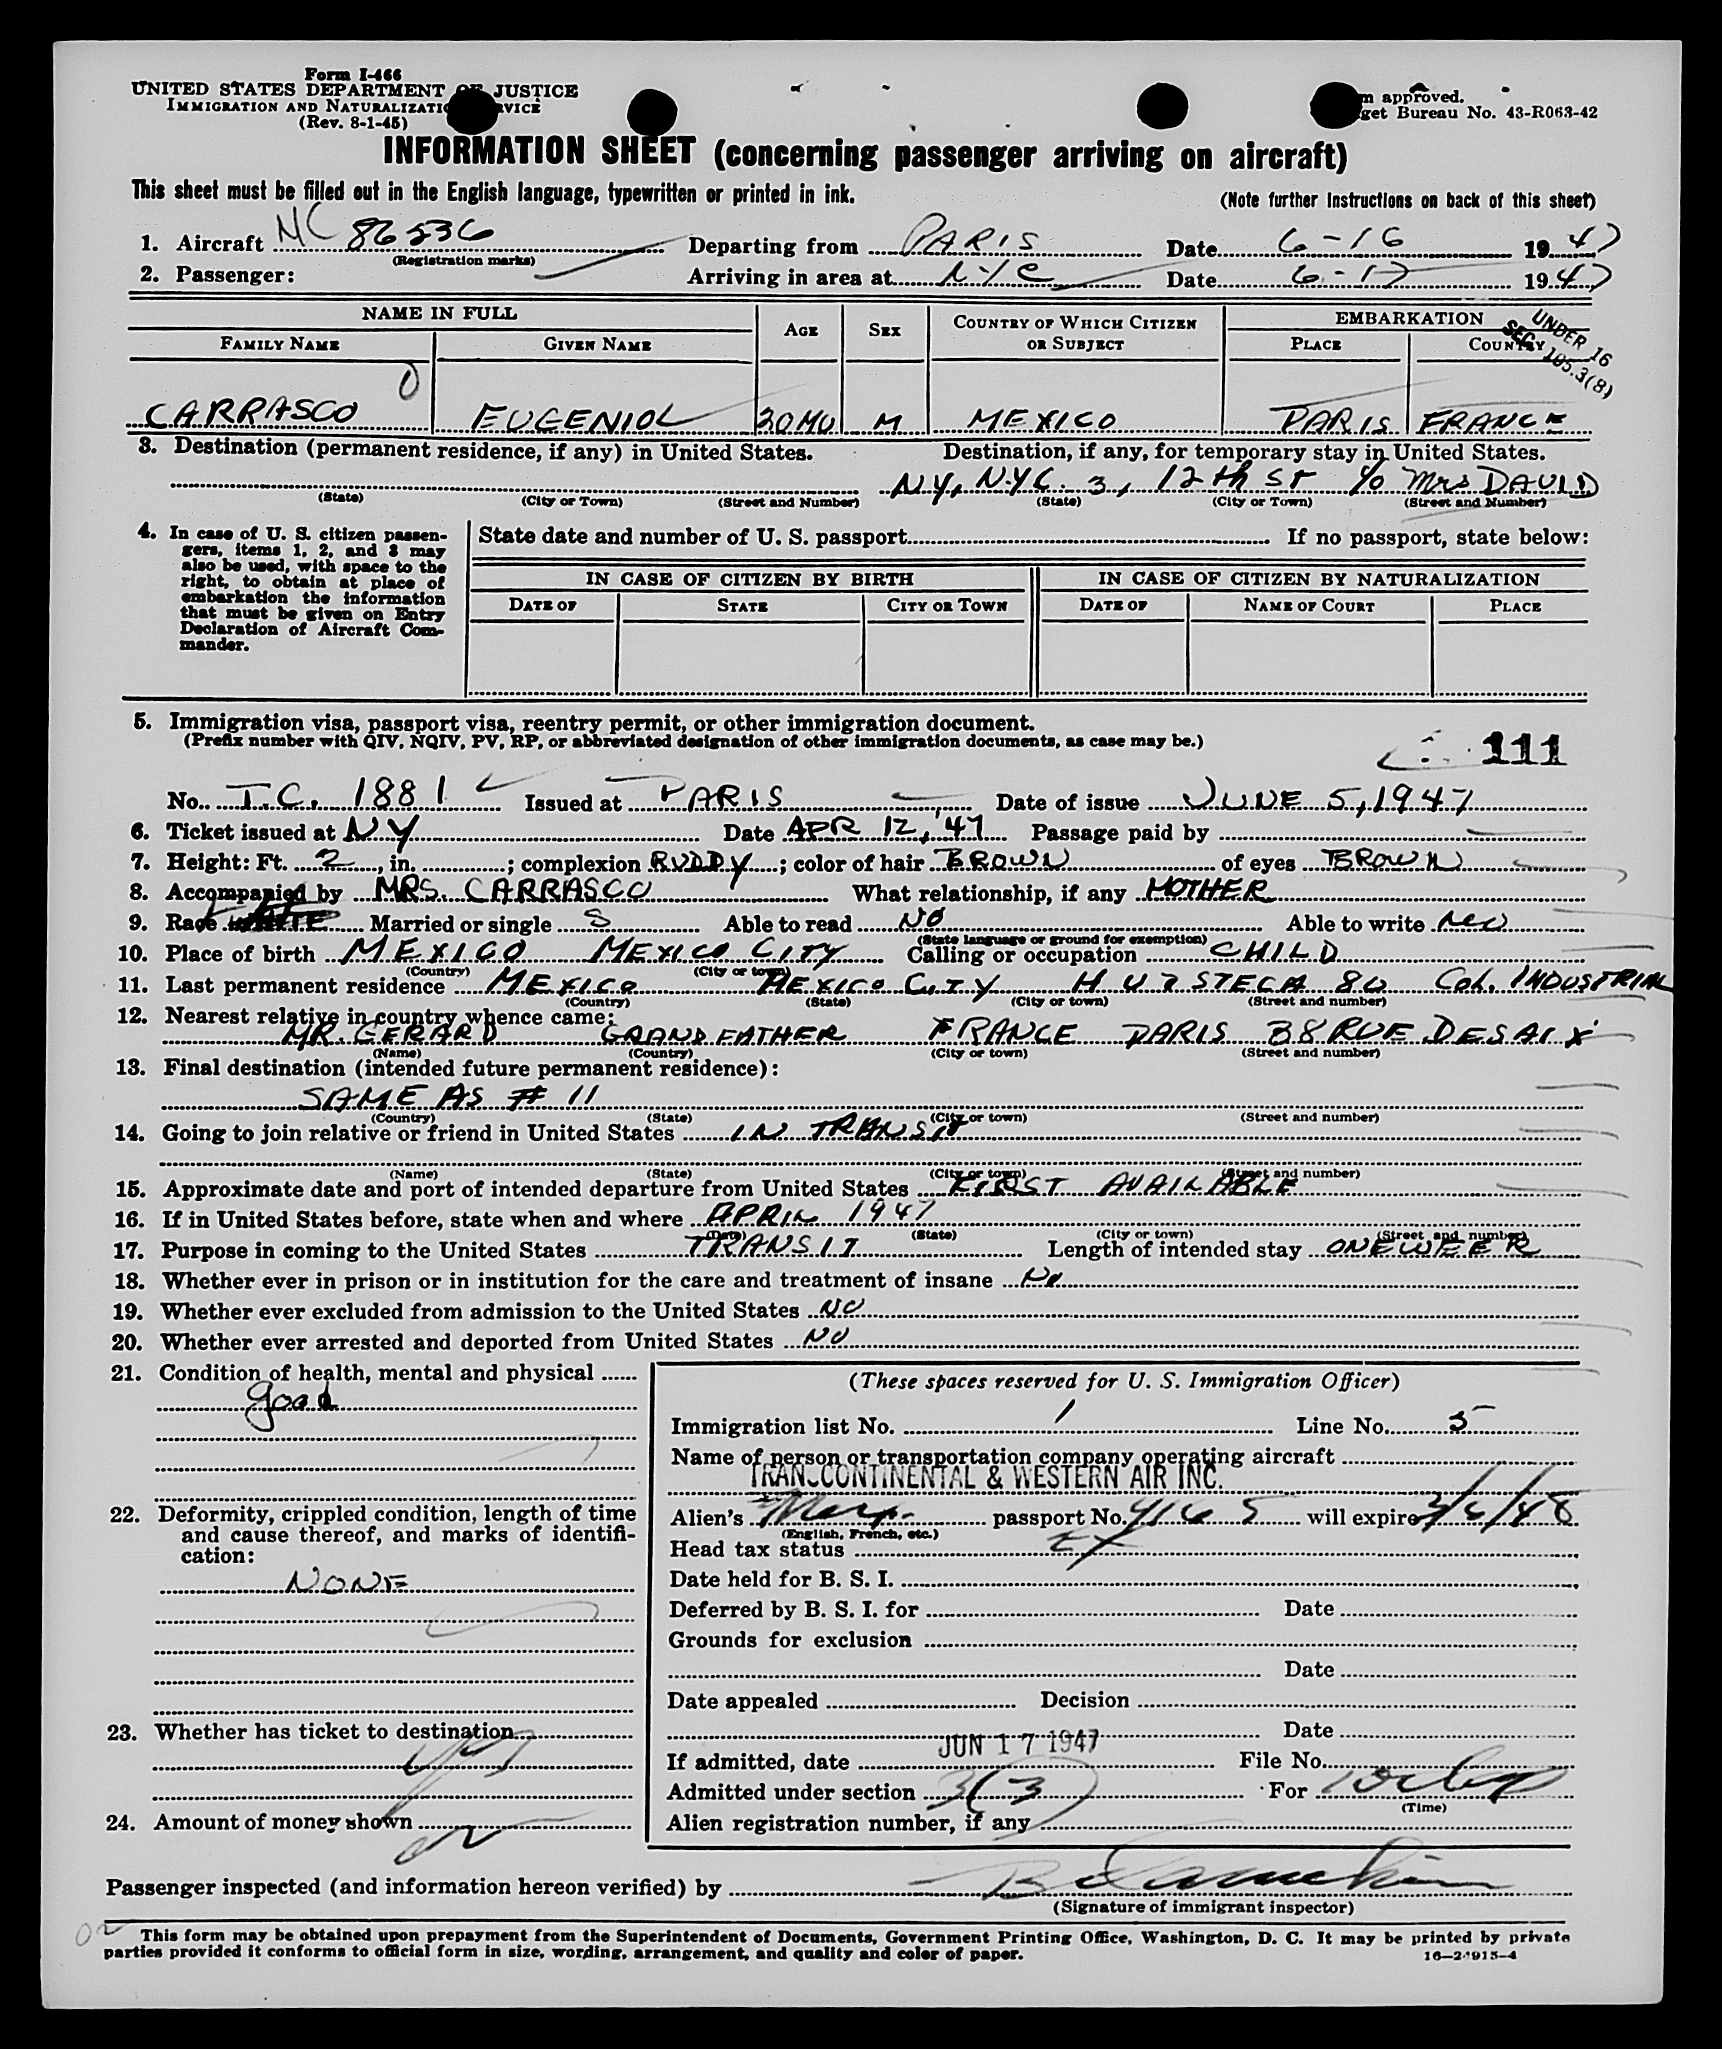 Form I-466
UNITED STATES DEPARTMENT OF JUSTICE
IMMIGRATION AND NATURALIZATION SERVICE
(Rev. 8-1-45)
Form approved.
Budget Bureau No. 43-R063-42
INFORMATION SHEET (concerning passenger arriving on aircraft)
This sheet must be filled out in the English language, typewritten or printed in ink.
(Note further instructions on back of this sheet)
1. Aircraft NC 86536 Departing from PARIS Date 6-16 1947
(Registration marks)
2. Passenger: Arriving in area at NYC Date 6-17 1947
NAME IN FULL AGE SEX COUNTRY OF WHICH CITIZEN OR SUBJECT EMBARKATION
FAMILY NAME GIVEN NAME PLACE COUNTRY
UNDER 16
SEC. 105.3(8)
CARRASCO EUGENIO L 20 MO M MEXICO PARIS FRANCE
3. Destination (permanent residence, if any) in United States. Destination, if any, for temporary stay in United States.
NY, NYC. 3, 12th ST c/o Mrs DAVID
(State) (City or Town) (Street and Number) (State) (City or Town) (Street and Number)
4. In case of U. S. citizen passengers, items 1, 2, and 3 may also be used, with space to the right, to obtain at place of embarkation the information that must be given on Entry Declaration of Aircraft Commander.
State date and number of U. S. passport If no passport, state below:
IN CASE OF CITIZEN BY BIRTH IN CASE OF CITIZEN BY NATURALIZATION
DATE OF STATE CITY OR TOWN DATE OF NAME OF COURT PLACE
5. Immigration visa, passport visa, reentry permit, or other immigration document.
(Prefix number with QIV, NQIV, PV, RP, or abbreviated designation of other immigration documents, as case may be.)
111
No. T.C. 1881 Issued at PARIS Date of issue JUNE 5, 1947
6. Ticket issued at NY Date APR 12, '47 Passage paid by
7. Height: Ft. 2, in. ; complexion RUDDY; color of hair BROWN of eyes BROWN
8. Accompanied by MRS. CARRASCO What relationship, if any MOTHER
9. Race Married or single S Able to read NO Able to write NO
(State language or ground for exemption)
10. Place of birth MEXICO MEXICO CITY Calling or occupation CHILD
(Country) (City or town)
11. Last permanent residence MEXICO MEXICO CITY HUASTECA 80 COL. INDUSTRIAL
(Country) (State) (City or town) (Street and number)
12. Nearest relative in country whence came:
MR. GERARD GRANDFATHER FRANCE PARIS 38 RUE DESAIX
(Name) (Country) (City or town) (Street and number)
13. Final destination (intended future permanent residence):
SAME AS # 11
(Country) (State) (City or town) (Street and number)
14. Going to join relative or friend in United States IN TRANSIT
(Name) (State) (City or town) (Street and number)
15. Approximate date and port of intended departure from United States FIRST AVAILABLE
16. If in United States before, state when and where APRIL 1947
(Date) (State) (City or town) (Street and number)
17. Purpose in coming to the United States TRANSIT Length of intended stay ONE WEEK
18. Whether ever in prison or in institution for the care and treatment of insane No
19. Whether ever excluded from admission to the United States NO
20. Whether ever arrested and deported from United States NO
21. Condition of health, mental and physical
good
22. Deformity, crippled condition, length of time and cause thereof, and marks of identification:
NONE
23. Whether has ticket to destination
yes
24. Amount of money shown
(These spaces reserved for U. S. Immigration Officer)
Immigration list No. 1 Line No. 5
Name of person or transportation company operating aircraft
TRANSCONTINENTAL & WESTERN AIR INC.
Alien's Mex. passport No. 4165 will expire 3/6/48
(English, French, etc.)
Head tax status EX
Date held for B. S. I.
Deferred by B. S. I. for Date
Grounds for exclusion
Date
Date appealed Decision
Date
If admitted, date JUN 17 1947 File No.
Admitted under section 3(3) For
(Time)
Alien registration number, if any
Passenger inspected (and information hereon verified) by
(Signature of immigrant inspector)
This form may be obtained upon prepayment from the Superintendent of Documents, Government Printing Office, Washington, D. C. It may be printed by private
parties provided it conforms to official form in size, wording, arrangement, and quality and color of paper.